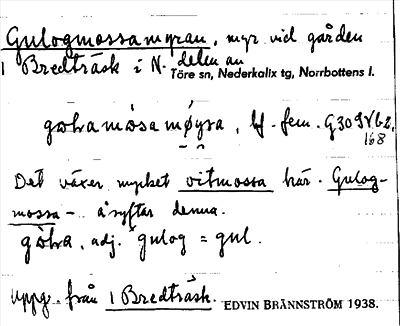 Gulogmossamyran, myr vid gården
1 Bredträsk i N. delen av
Töre sn, Nederkalix tg, Norrbottens l.
gωlωa mósa mǿyra, bf. fem. G309Vb2,
168
Det växer mycket vitmossa här. Gulog-
mossa- åsyftar denna.
adj. gulog = gul.
Uppg. från 1 Bredträsk. EDVIN BRÄNNSTRÖM 1938.